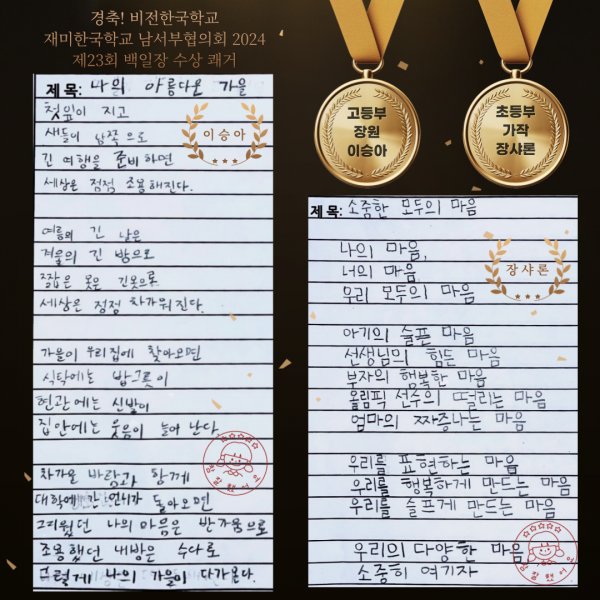 경축! 비전한국학교
재미한국학교 남서부협의회 2024
제23회 백일장 수상 쾌거
고등부
장원
이승아
초등부
가작
장샤론
제 목: 나의 아름다운 가을
첫잎이 지고
새들이 남쪽으로
긴 여행을 준비하면
세상은 점점 조용해진다.
여름의 긴 낮은
겨울의 긴 밤으로
짧은 옷은 긴옷으로
세상은 점점 차가워진다.
가을이 우리집에 찾아오면
식탁에는 밥그릇이
현관에는 신발이
집안에는 웃음이 늘어 난다.
차가운 바람과 함께
대학에 간 언니가 돌아오면
그리웠던 나의 마음은 반가움으로
조용했던 내방은 수다로
그렇게 나의 가을이 다가온다.
이승아
참 잘했어요
제 목: 소중한 모두의 마음
나의 마음,
너의 마음
우리 모두의 마음
아기의 슬픈 마음
선생님의 힘든 마음
부자의 행복한 마음
올림픽 선수의 떨리는 마음
엄마의 짜증나는 마음
우리를 표현하는 마음
우리를 행복하게 만드는 마음
우리를 슬프게 만드는 마음
우리의 다양한 마음
소중히 여기자
장샤론
참 잘했어요